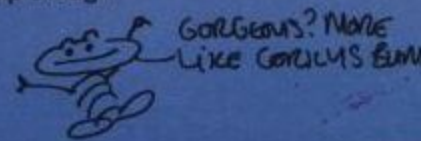 GORGEOUS? MORE
LIKE GORILLYS BUM